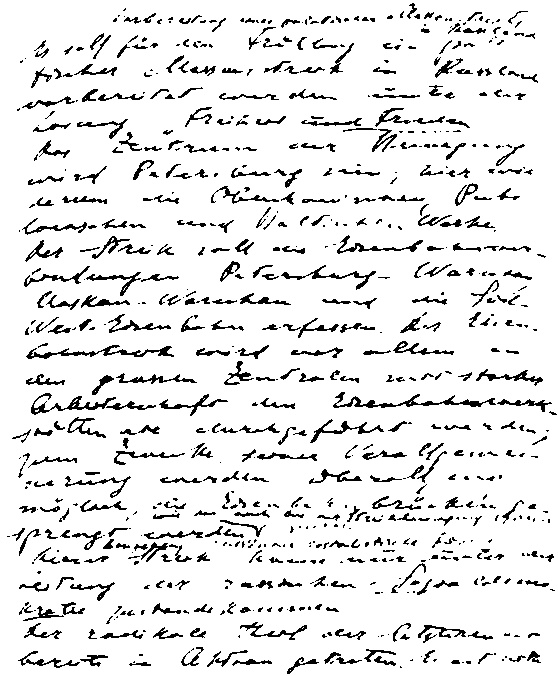 Vorbereitung eines politischen Massenstreiks
in Russland
Es soll für den Frühling ein poli-
tischer Massenstreik in Russland
vorbereitet werden unter der
Losung Freiheit und Frieden
Das Zentrum der Bewegung
wird Petersburg sein, hier wie-
derum die Obuchowwerke, Puti-
lowschen und Baltischen Werke
Der Streik soll die Eisenbahnver-
bindungen Petersburg-Warschau
Moskau-Warschau und die Süd-
West-Eisenbahn erfassen. Der Eisen-
bahnstreik wird vor allem in
den grossen Zentralen mit starker
Arbeiterschaft den Eisenbahnwerk-
stätten etc durchgeführt werden,
zum Zwecke seiner Verallgemei-
nerung werden überall wo
möglich, die Eisenbahnbrücken ge-
sprengt werden
Dieser Streik kann nur unter der
Leitung der russischen Sozialdemo-
kratie zustande kommen
Der radikale Teil der Letzteren ist
bereits in Aktion getreten. Es ist